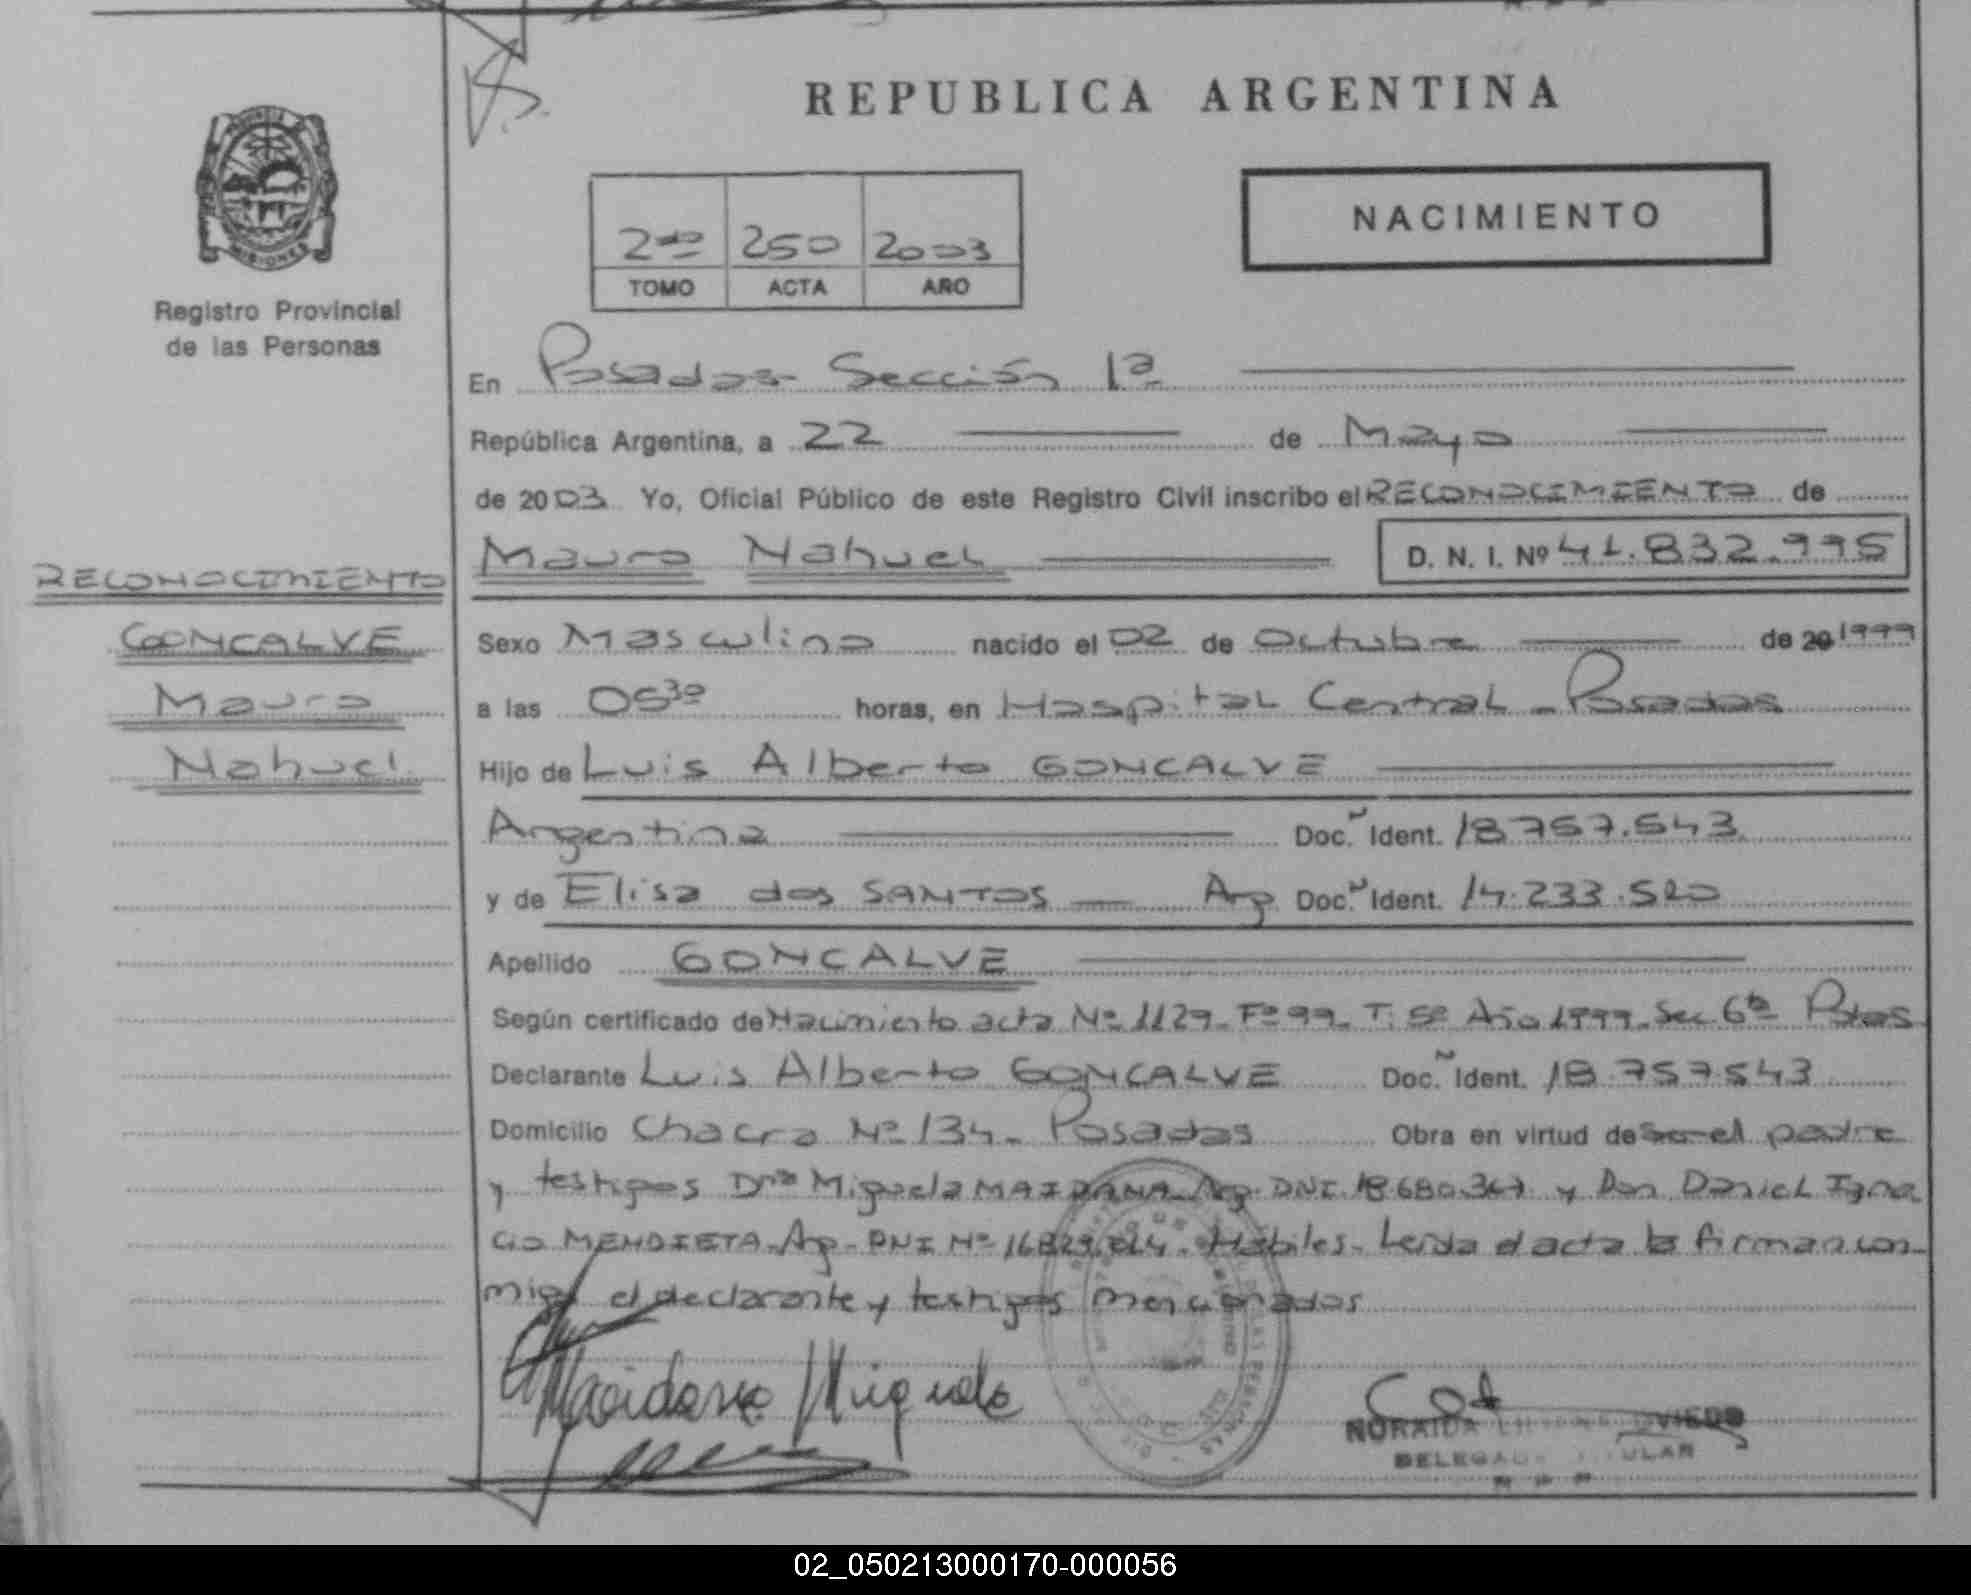 REPUBLICA ARGENTINA
PROVINCIA DE
MISIONES
Registro Provincial
de las Personas
2do 250 2003
TOMO ACTA AÑO
NACIMIENTO
En Posadas- Sección 1ª
República Argentina, a 22 de Mayo
de 2003 Yo, Oficial Público de este Registro Civil inscribo el RECONOCIMIENTO de
Mauro Nahuel D. N. I. Nº 41.832.995
RECONOCIMIENTO
GONCALVE
Mauro
Nahuel
Sexo Masculino nacido el 02 de Octubre de 20 1999
a las 05³⁰ horas, en Hospital Central - Posadas
Hijo de Luis Alberto GONCALVE
Argentina Doc. Ident. 18.757.543
y de Elisa dos SANTOS Arg Doc. Ident. 14.233.520
Apellido GONCALVE
Según certificado de Nacimiento acta Nº 1129- Fº 99- T: 5º Año 1999- Sec 6ta Pdas
Declarante Luis Alberto GONCALVE Doc. Ident. 18.757.543
Domicilio Chacra Nº 134- Posadas Obra en virtud de ser el padre
y testigos Dña Miguela MAIDANA- Arg- DNI. 18.680.367 y Don Daniel Igna
cio MENDIETA- Arg- DNI Nº Hábiles- Leída el acta la firman con-
migo el declarante y testigos mencionados
Maidana Miguela
NORAIDA OVIEDO
02_050213000170-000056